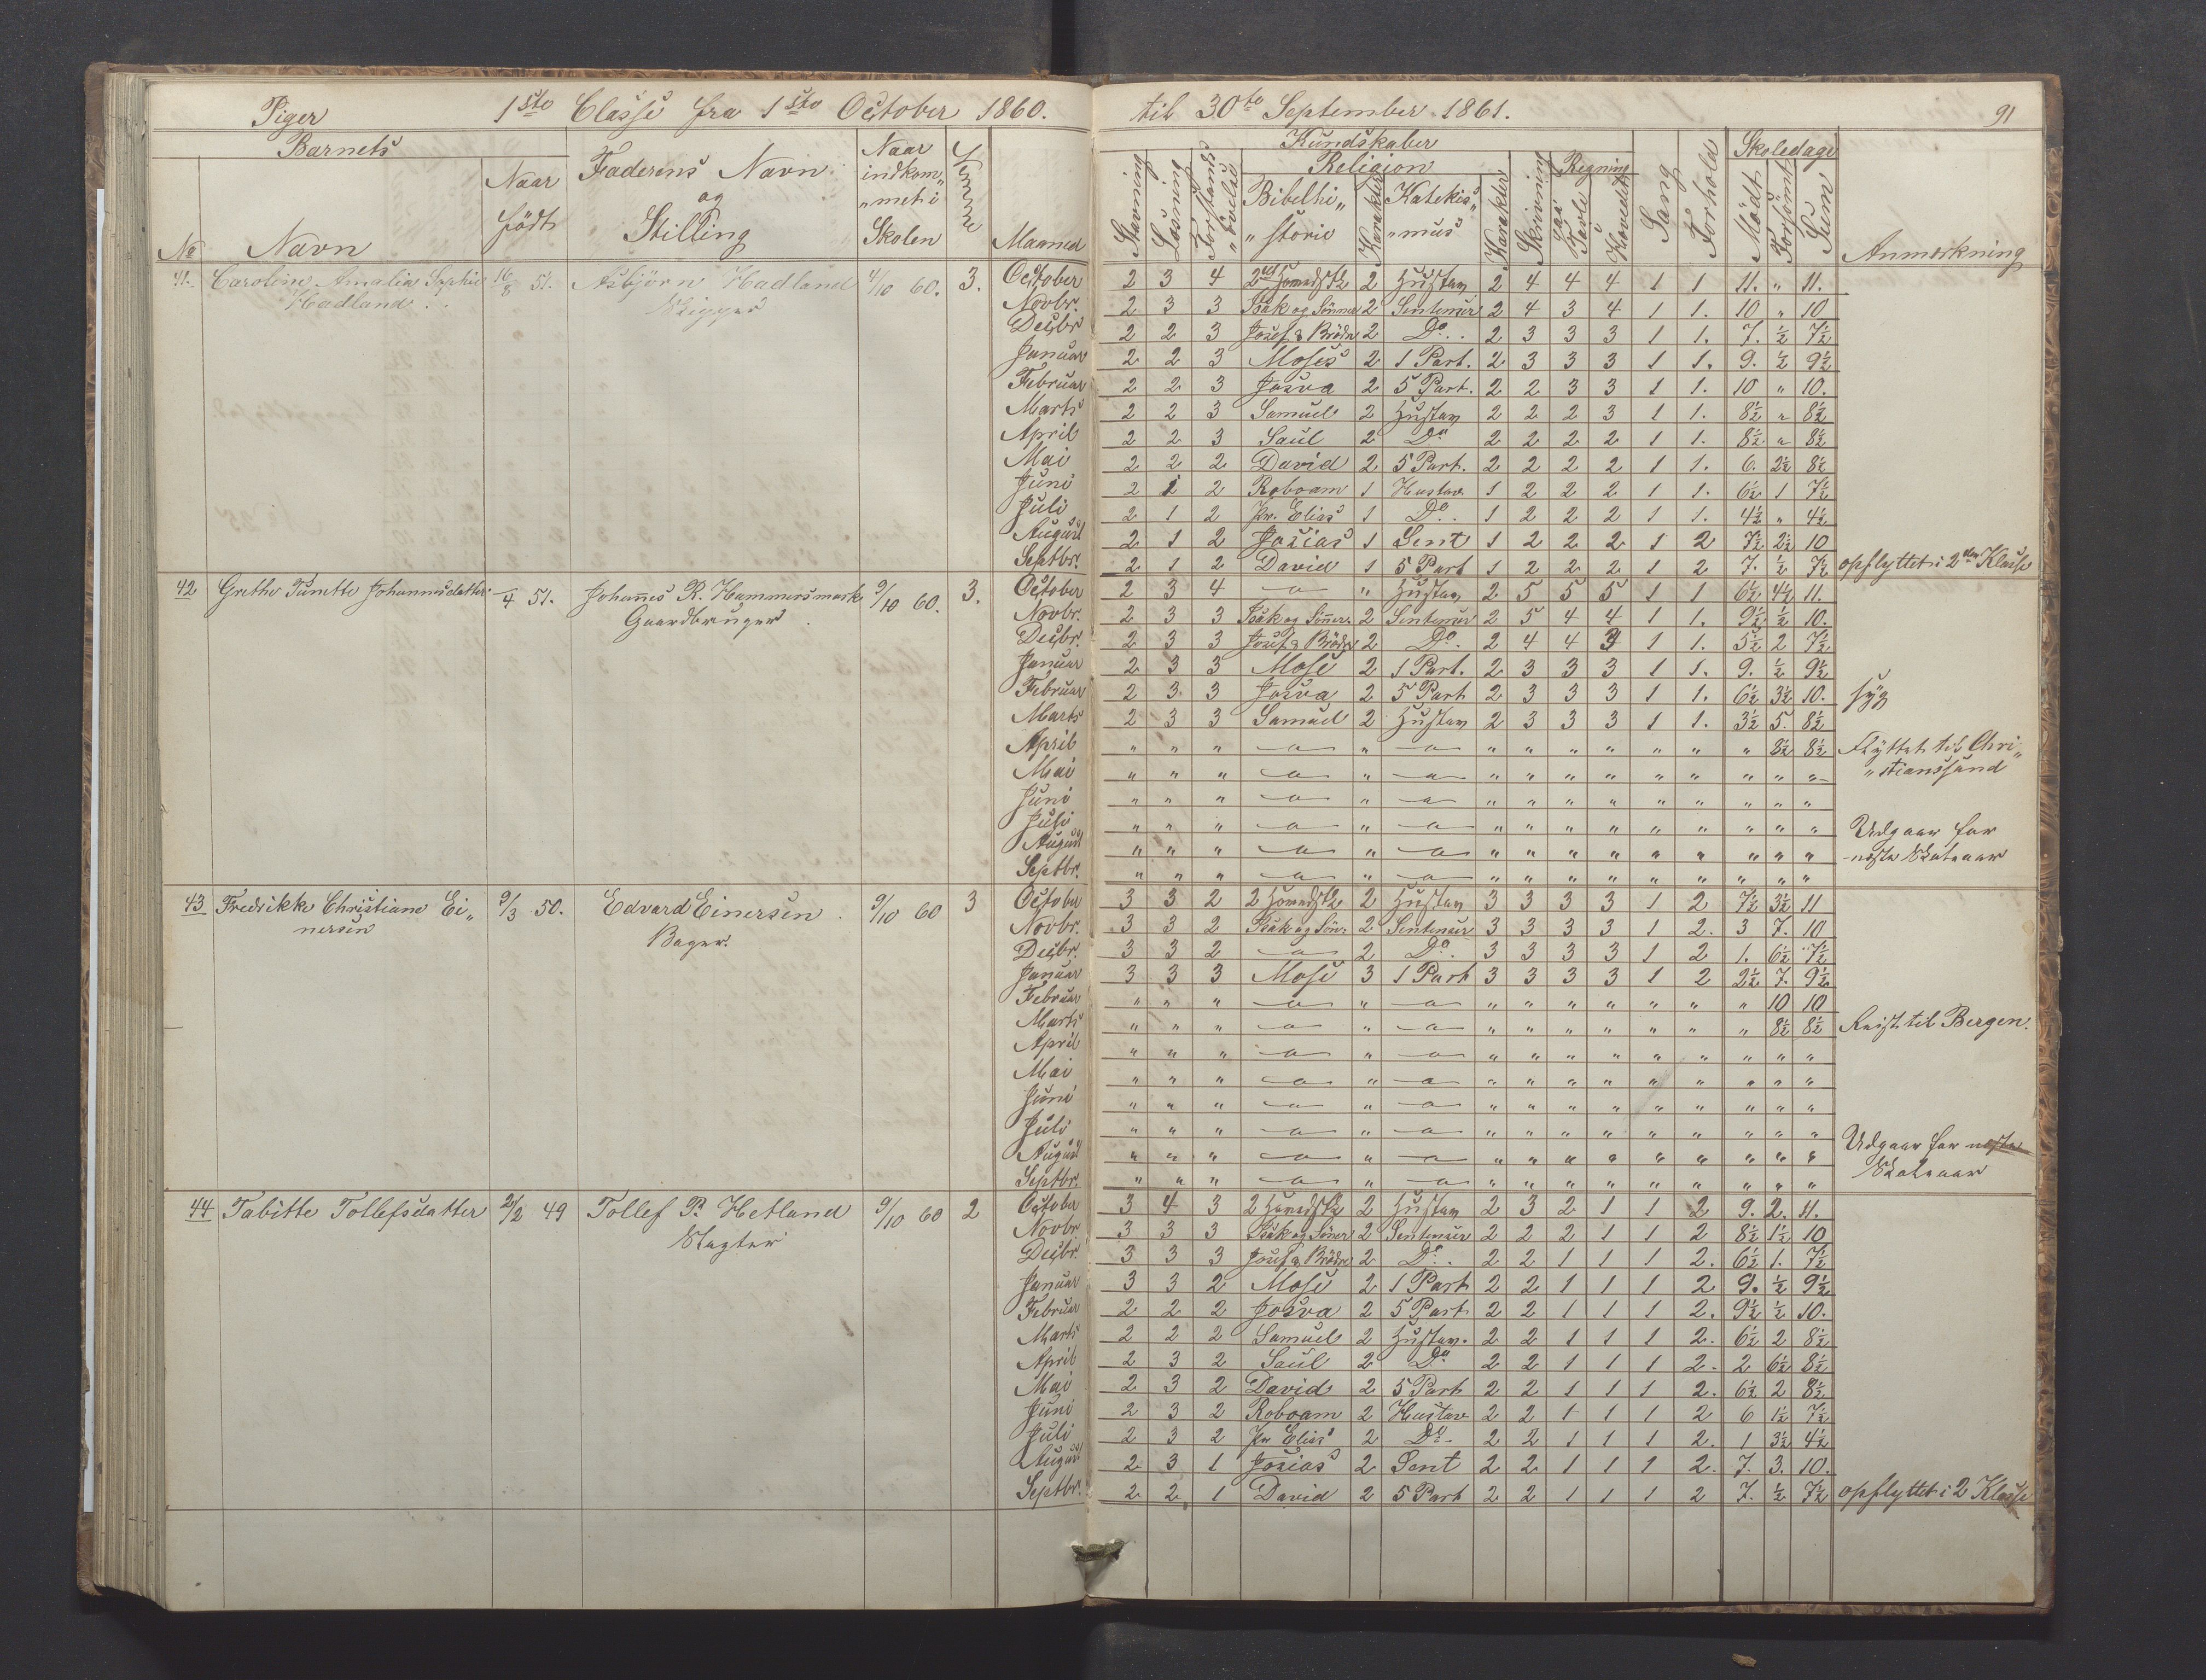 Piger 1ste Classe fra 1ste October 1860. til 30te September 1861. 91
Barnets Faderens Navn og Stilling Naar indkommet i Skolen Evne Maaned Kundskaber Skoledage Anmerkning
No Navn Naar født Stavning Læsning Forstandsøvelse Religion Bibelhistorie Karakter Katekismus Karakter Skrivning Regning paa Tavle Hovedet Sang Forhold Mødt Forsømt Sum
41. Caroline Amalia Sophie 16/8 51. Asbjörn Hadland 4/10 60. 3. October 2 3 4 2 2 Hustav 2 4 4 4 1 1 11. " 11.
Hadland Skipper Novbr. 2 3 3 Isak og Sönner 2 Sentenser 2 4 3 4 1 1. 10 " 10
Decbr 2 2 3 Josef & Brödre 2 Do. 2 3 3 3 1 1. 7. ½ 7½
Januar 2 2 3 Moses 2 1 Part. 2 3 3 3 1 1. 9. ½ 9½
Februar 2 2 3 Josva 2 5 Part. 2 2 3 3 1 1. 10 " 10.
Marts 2 2 3 Samuel 2 Hustav 2 2 2 3 1 1. 8½ " 8½
April 2 2 3 Saul 2 Do 2 2 2 2 1 1. 8½ " 8½
Mai 2 2 2 David 2 5 Part. 2 2 2 2 1 1. 6. 2½ 8½
Juni 2 1 2 Roboam 1 Hustav 1 2 2 2 1 1. 6½ 1 7½
Juli 2 1 2 Elias 1 Do. 1 2 2 2 1 1. 4½ " 4½
August 2 1 2 Josias 1 Sent 1 2 2 2 1 2 7½ 2½ 10
Septbr. 2 1 2 David 1 5 Part 1 2 2 2 1 2 7. ½ 7½ opflyttet i 2den Klasse
42 Grethe Tunette Johannesdatter /4 51. Johannes R. Hammersmark 9/10 60. 3. October 2 3 4 " " Hustav 2 5 5 5 1 1 6½ 4½ 11.
Gaardbruger Novbr. 2 3 3 Isak og Sönner 2 Sentenser 2 5 4 4 1 1. 9½ ½ 10.
Decbr. 2 3 3 Josef & Brödre 2 Do. 2 4 4 3 1 1. 5½ 2 7½
Januar 2 3 3 Mose 2 1 Part. 2 3 3 3 1 1. 9. ½ 9½
Februar 2 3 3 Josva 2 5 Part 2 3 3 3 1 1. 6½ 3½ 10. syg
Marts 2 3 3 Samuel 2 Hustav 2 3 3 3 1 1. 3½ 5. 8½
April " " " " " " " " " " " " " 8½ 8½ Flyttet til Chri„
Mai " " " " " " " " " " " " " " " „stianssund
Juni " " " " " " " " " " " " " " "
Juli " " " " " " " " " " " " " " " Udgaar for
August " " " " " " " " " " " " " " " næste Skoleaar
Septbr. " " " " " " " " " " " " " " "
43 Fredrikke Christiane Ei„ 9/3 50. Edvard Einersen 9/10 60 3 October 3 3 2 2 2 Hustav 3 3 3 3 1 2 7½ 3½ 11
nersen Bager. Novbr. 3 3 2 Isak og Sön. 2 Sentenser 3 3 3 3 1 2. 3 7. 10
Decbr. 3 3 2 " 2 Do. 3 3 3 3 1 2 1. 6½ 7½
Januar 3 3 3 Mose 3 1 Part 3 3 3 3 1 2 2½ 7. 9½
Februar " " " " " " " " " " " " " 10 10
Marts " " " " " " " " " " " " " 8½ 8½ Reist til Bergen.
April " " " " " " " " " " " " " " "
Mai " " " " " " " " " " " " " " "
Juni " " " " " " " " " " " " " " "
Juli " " " " " " " " " " " " " " "
August " " " " " " " " " " " " " " " Udgaar for næste
Septbr. " " " " " " " " " " " " " " " Skoleaar
44 Tabitte Tollefsdatter 2/2 49 Tollef P. Hetland 9/10 60 2 October 3 4 3 2 2 Hustav 2 3 2 1 1 2 9. 2. 11.
Slagter Novbr 3 3 3 Isak og Söner 2 Sentenser 2 2 2 1 1 2 8½ 1½ 10
Decbr. 3 3 3 Josef & Brödre 2 Do. 2 2 1 1 1 2. 6½ 1. 7½
Januar 3 3 2 Mose 2 1 Part 2 2 1 1 1 2 9. ½ 9½
Februar 2 2 2 Josva 2 5 Part 2 2 1 1 1 2. 9½ ½ 10.
Marts 2 2 2 Samuel 2 Hustav. 2 2 1 1 1 2. 6½ 2 8½
April 2 3 2 Saul 2 Do 2 2 1 1 1 2. 2 6½ 8½
Mai 2 3 2 David 2 5 Part 2 2 1 1 1 2. 6½ 2 8½
Juni 2 3 2 Roboam 2 Hustav 2 2 1 1 1 2 6 1½ 7½
Juli 2 3 2 Elias 2 Do. 2 2 1 1 1 2. 1 3½ 4½
August 2 3 1 Josias 2 Sent 2 2 1 1 1 2. 7. 3. 10.
Septbr. 2 2 1 David 2 5 Part 2 2 1 1 1 2 7. ½ 7½ opflyttet i 2 Klasse